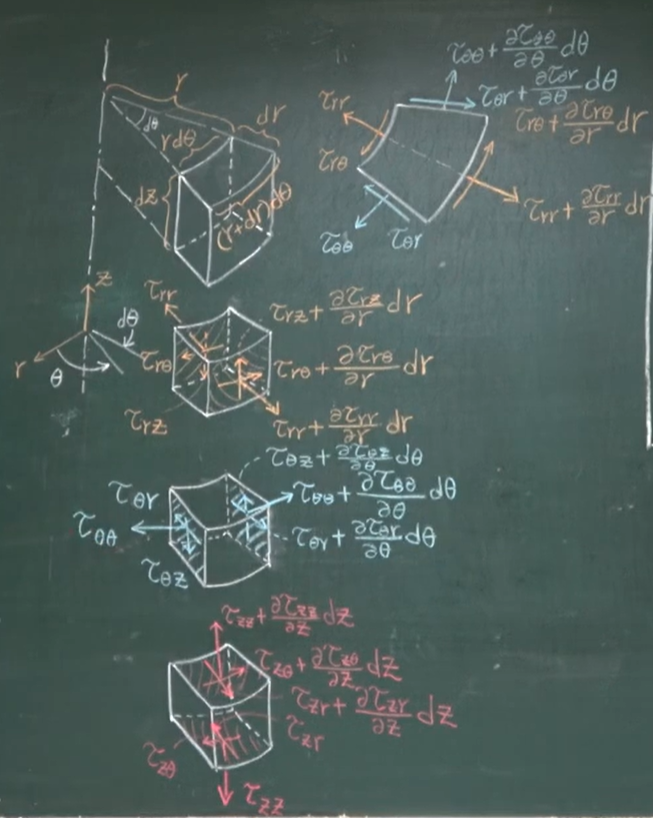 r
dθ
rdθ
dr
dz
(r+dr)dθ
τθθ + ∂τθθ/∂θ dθ
τθr + ∂τθr/∂θ dθ
τrr
τrθ + ∂τrθ/∂r dr
τrθ
τrr + ∂τrr/∂r dr
τθθ
τθr
z
dθ
r
θ
τrr
τrz + ∂τrz/∂r dr
τrθ
τrθ + ∂τrθ/∂r dr
τrz
τrr + ∂τrr/∂r dr
τθz + ∂τθz/∂θ dθ
τθr
τθθ + ∂τθθ/∂θ dθ
τθθ
τθr + ∂τθr/∂θ dθ
τθz
τzz + ∂τzz/∂z dz
τzθ + ∂τzθ/∂z dz
τzr + ∂τzr/∂z dz
τzr
τzθ
τzz